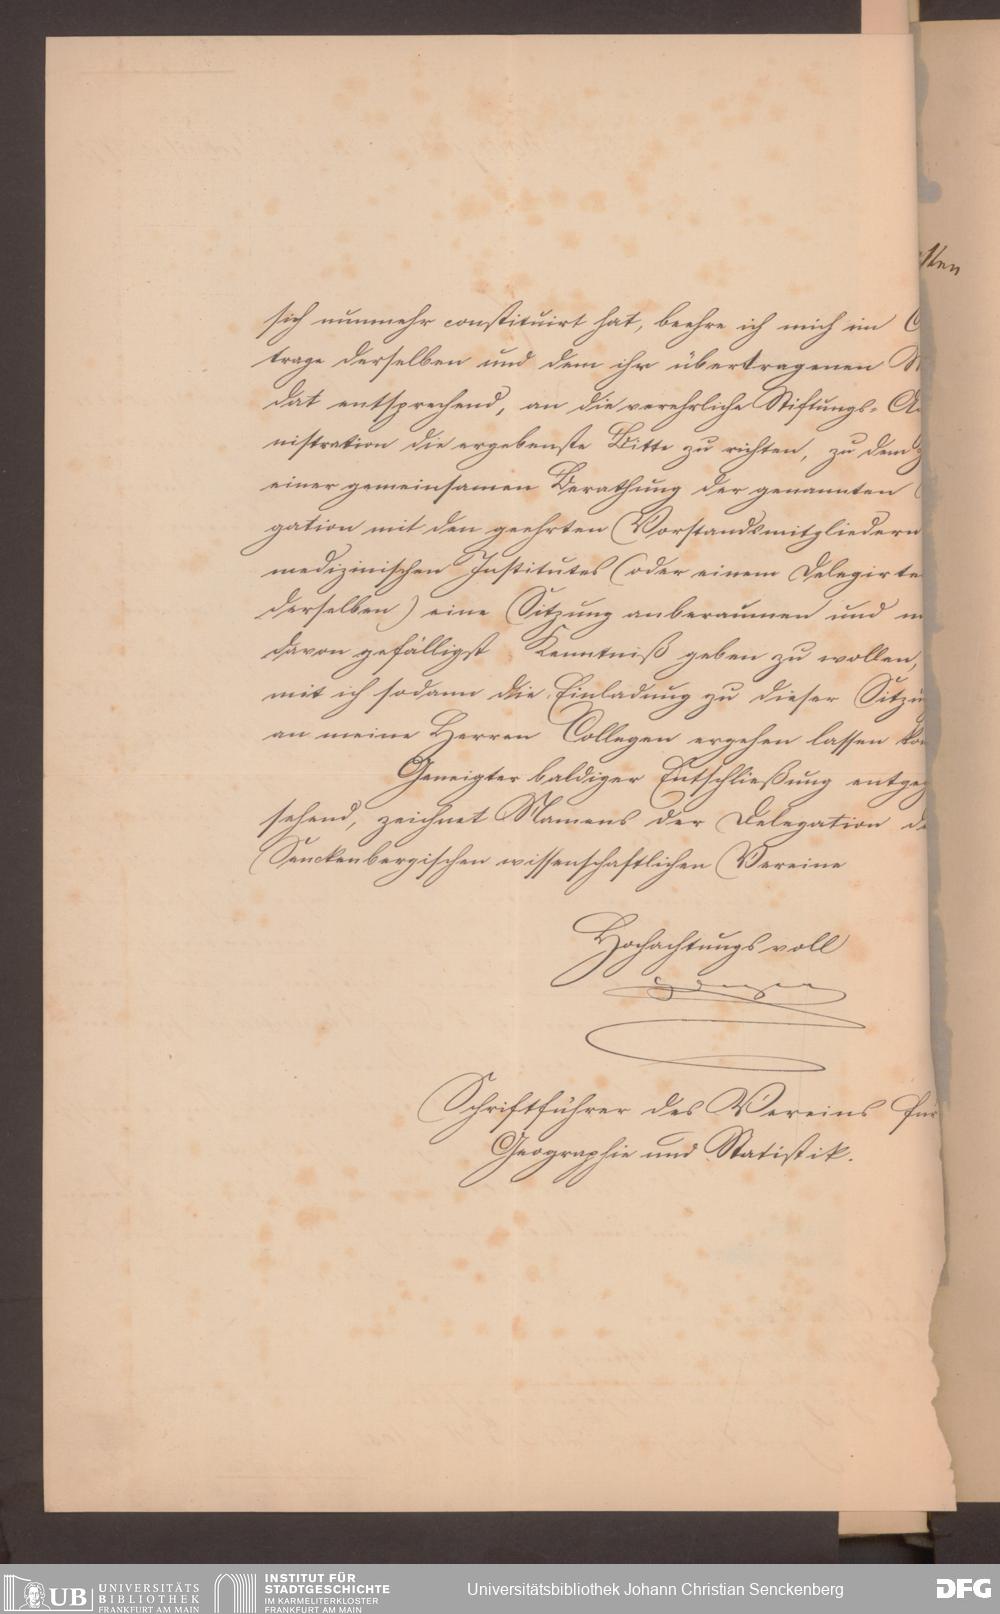 sich nunmehr constituirt hat, beehre ich mich im
trage derselben und dem ihr übertragenen
dat entsprechend, an die verehrliche Stiftungs-
nistration die ergebenste Bitte zu richten, zu dem
einer gemeinsamen Berathung der genannten
gation mit den geehrten Vorstandsmitgliedern
medizinischen Institutes (oder einem Delegirte
derselben) eine Sitzung anberaumen und
davon gefälligst Kenntniß geben zu wollen,
mit ich sodann die Einladung zu dieser Sitzu
an meine Herren Collegen ergehen lassen
Geneigter baldiger Entschließung entge
sehend, zeichnet Namens der Delegation
Senckenbergischen wissenschaftlichen Vereine
Hochachtungsvoll
Schriftführer des Vereins für
Geographie und Statistik.
UB UNIVERSITÄTS
BIBLIOTHEK
FRANKFURT AM MAIN
INSTITUT FÜR
STADTGESCHICHTE
IM KARMELITERKLOSTER
FRANKFURT AM MAIN
Universitätsbibliothek Johann Christian Senckenberg
DFG